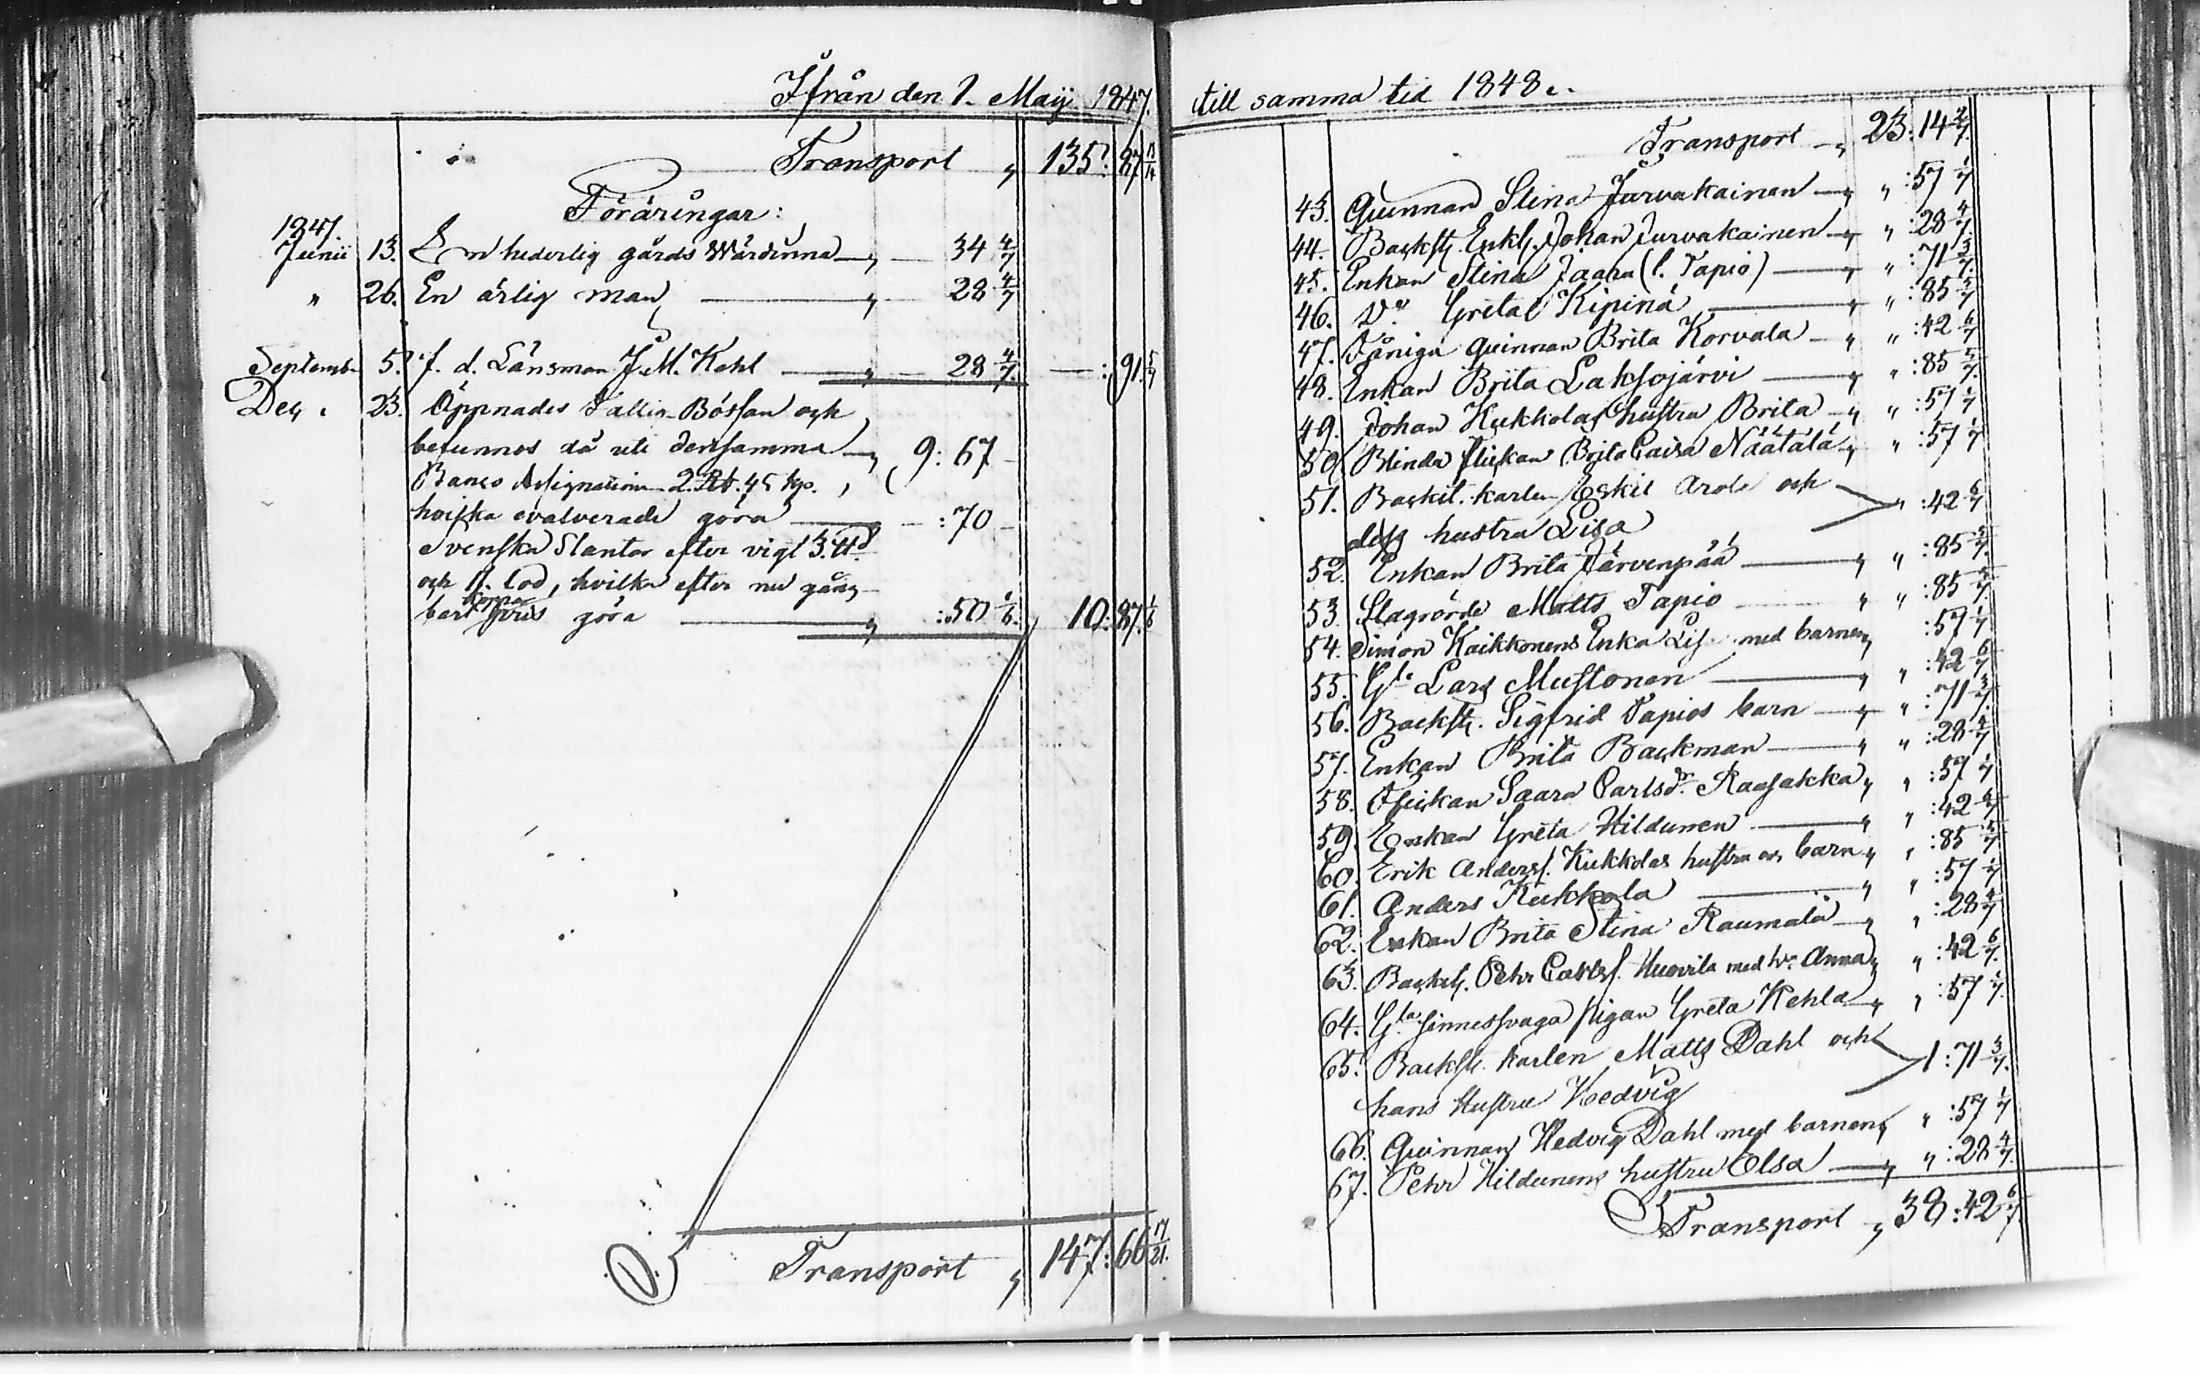 Ifrån den 1. Maij 1847.
Transport „ 135: 87 13/14
Föräringar:
1847.
Junii 13. En hederlig gårds Wärdinna „ 34 4/7
„ 26. En ärlig man „ 28 4/7
Septemb. 5. f. d. Länsman J. M. Kehl „ 28 4/7. — : 91 5/7
Dec. 23. Öppnades Fattig-Bössan och
befunnos då uti densamma „ 9: 67 —
Banco Assignationer 2. Rd. 45 kp.
hvilka evalverade göra — :70 —
svenska Slantar efter vigt 3. ℔
och 11. lod, hvilka efter nu gång-
bart koppar pris göra „ :50 1/6. 10: 87. 1/6
Transport „ 147: 66 17/21.
till samma tid 1848.
Transport „ 23: 14 2/7.
43. Quinnan Stina Jurvakainen „ „ :57 1/7
44. Backst. Enkl. Johan Jurvakainen „ „ :28 4/7.
45. Enkan Stina Jaara (l. Tapio) „ „ :71 3/7.
46. Do Greta Kipinä „ „ :85 5/7
47. Fåniga quinnan Brita Korvala „ „ :42 6/7
48. Enkan Brita Laksojärvi „ :85 5/7.
49. Johan Kukkolas hustru Brita „ „ :57 1/7
50. Blinda flickan Brita Caisa Näätälä „ „ :57 1/7
51. Backst. karlen Eskil Arola och
dess hustru Lisa „ :42 6/7
52. Enkan Brita Järvenpää „ „ :85 5/7.
53. Slagrörde Matts Tapio „ „ :85 5/7.
54. Simon Kaikkonens Enka Lisa med barnen „ :57 1/7
55. Gle Lars Mustonen „ „ :42 6/7
56. Backst. Sigfrid Tapios barn „ „ :71 3/7.
57. Enkan Brita Backman „ „ :28 4/7
58. Flickan Saara Carlsdr. Raasakka „ „ :57 1/7
59. Enkan Greta Hildunen „ „ :42 6/7
60. Erik Anderss. Kukkolas hustru och barn „ „ :85 5/7
61. Anders Kukkola „ „ :57 1/7
62. Enkan Brita Stina Raumala „ „ :28 4/7
63. Backst. Pehr Carlss. Huovila med h. Anna „ „ :42 6/7.
64. Gla sinnessvaga pigan Greta Kehla „ „ :57 1/7.
65. Backst. karlen Matts Dahl och
hans Hustru Hedvig 1:71 3/7.
66. Quinnan Hedvig Dahl med barnen „ „ :57 1/7
67. Pehr Hildunens hustru Elsa „ „ :28 4/7.
Transport „ 38:42 6/7